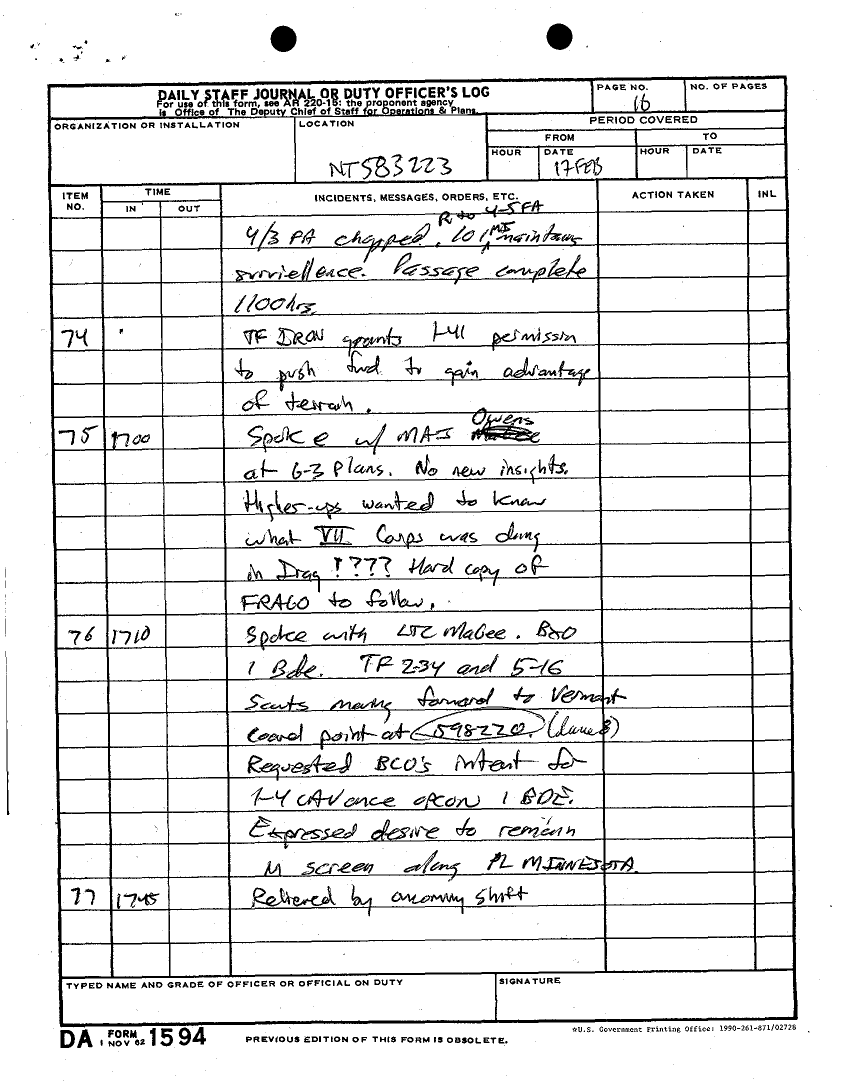 DAILY STAFF JOURNAL OR DUTY OFFICER'S LOG
For use of this form, see AR 220-15: the proponent agency
is Office of The Deputy Chief of Staff for Operations & Plans.
PAGE NO.
16
NO. OF PAGES
ORGANIZATION OR INSTALLATION
LOCATION
NT583223
PERIOD COVERED
FROM
TO
HOUR
DATE
17 FEB
HOUR
DATE
ITEM NO.
TIME
IN
OUT
INCIDENTS, MESSAGES, ORDERS, ETC.
ACTION TAKEN
INL
R to 4-5 FA
4/3 FA chopped. 101 MI maintains
surviellence. Passage complete
1100 hrs.
74 " TF IRON grants 1-41 permission
to push fwd to gain advantage
of terrain.
75 1700 Spoke w/ MAJ Owens
at G-3 Plans. No new insights.
Higher-ups wanted to know
what VII Corps was doing
in Iraq !???? Hard copy of
FRAGO to follow.
76 1710 Spoke with LTC McGee. BXO
1 Bde. TF 2-34 and 5-16
Scouts moving forward to Vermont
Coord point at 598220. (lane 8)
Requested BCO's intent for
1-4 CAV once opcon 1 BDE.
Expressed desire to remain
in screen along PL MINNESOTA.
77 1745 Relieved by oncoming shift
TYPED NAME AND GRADE OF OFFICER OR OFFICIAL ON DUTY
SIGNATURE
DA FORM 1594
1 NOV 62
PREVIOUS EDITION OF THIS FORM IS OBSOLETE.
*U.S. Government Printing Office: 1990-261-871/02728